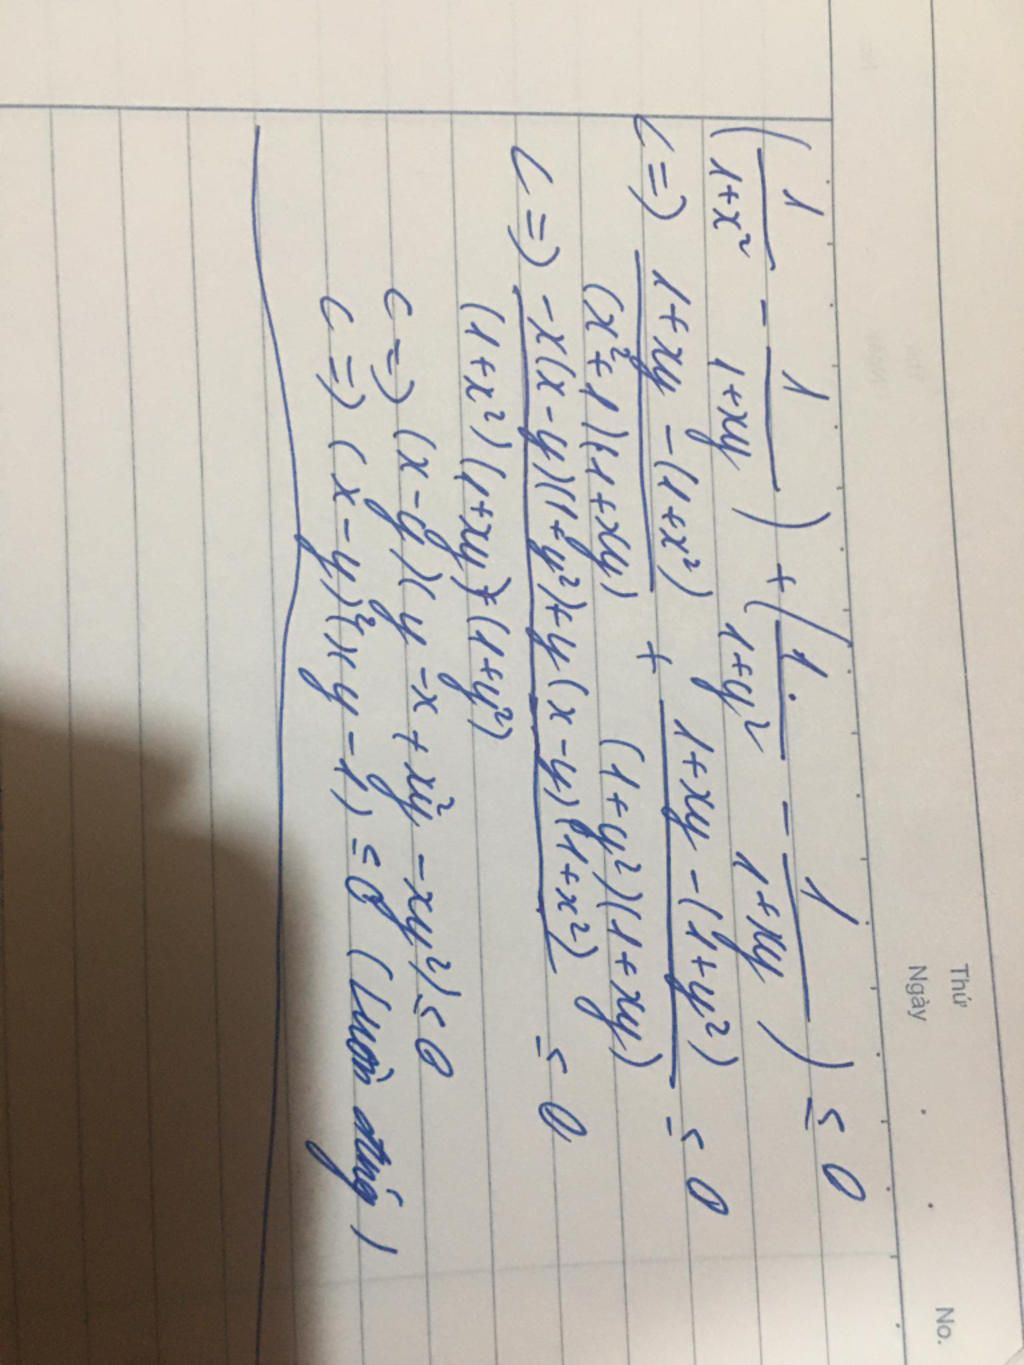 Thứ
Ngày
No.
(1/(1+x²) - 1/(1+xy)) + (1/(1+y²) - 1/(1+xy)) ≤ 0
<=> (1+xy-(1+x²))/((x²+1)(1+xy)) + (1+xy-(1+y²))/((1+y²)(1+xy)) ≤ 0
<=> (-x(x-y)(1+y²)+y(x-y)(1+x²))/((1+x²)(1+xy)(1+y²)) ≤ 0
<=> (x-y)(y-x+x²y-xy²) ≤ 0
<=> (x-y)²(xy-1) ≤ 0 (Luôn đúng)